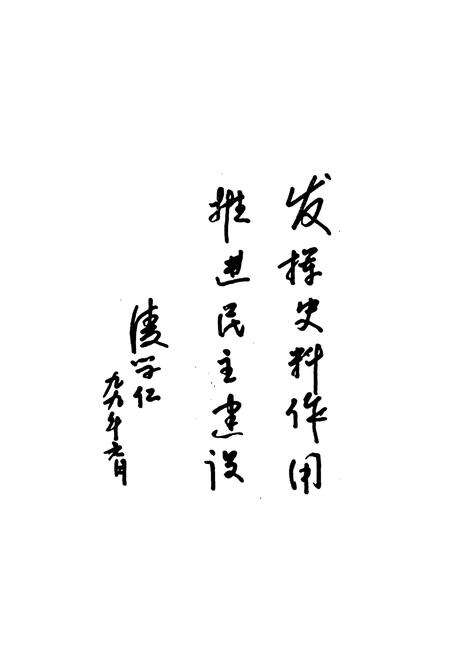 发挥史料作用
推进民主建设
凌学仁
九九年六月